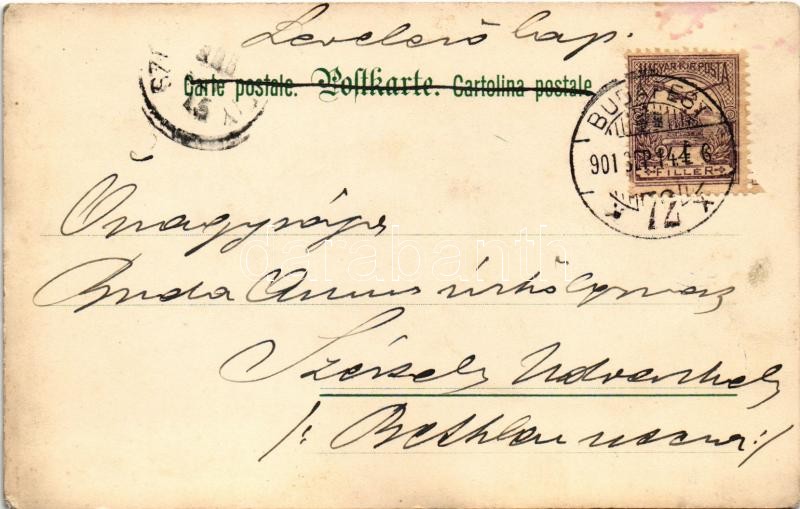 Levelező lap.
Carte postale. Postkarte. Cartolina postale.
MAGYAR KIR. POSTA
FILLÉR
BUDAPEST
901 SEP. 14
72
SZ
Őnagysága
Buda Annus úrhölgynek
Székely Udvarhely
/: Bethlen :/
darabanth